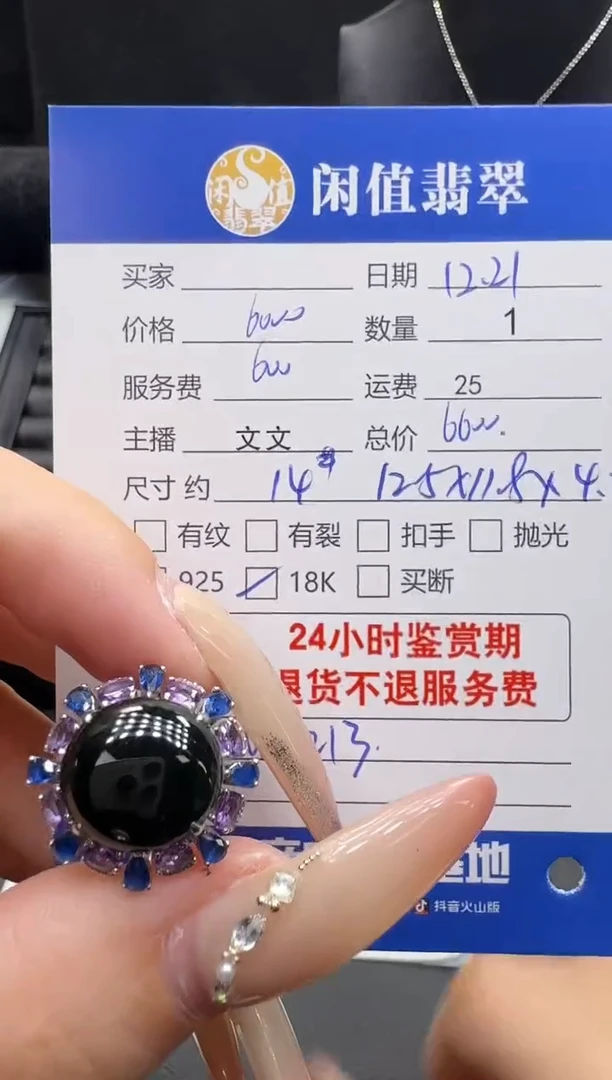 闲值翡翠
闲值翡翠
买家 日期 12.21
价格 6000 数量 1
服务费 600 运费 25
主播 文文 总价 6600.
尺寸 约 14# 12.5X11.8X4.
有纹 有裂 扣手 抛光
925 18K 买断
24小时鉴赏期
退货不退服务费
13.
地
抖音火山版